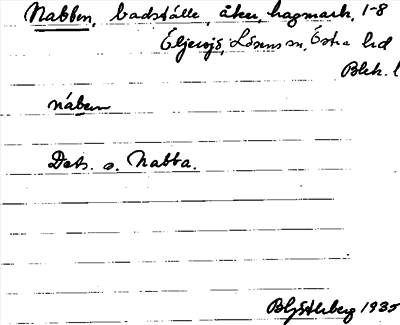 Nabben, badställe, åker, hagmark, 1-8
Eljerojö, Lösens sn, Östra hd
Blek. l
nábɐn
Dets. s. Nabba.
1935